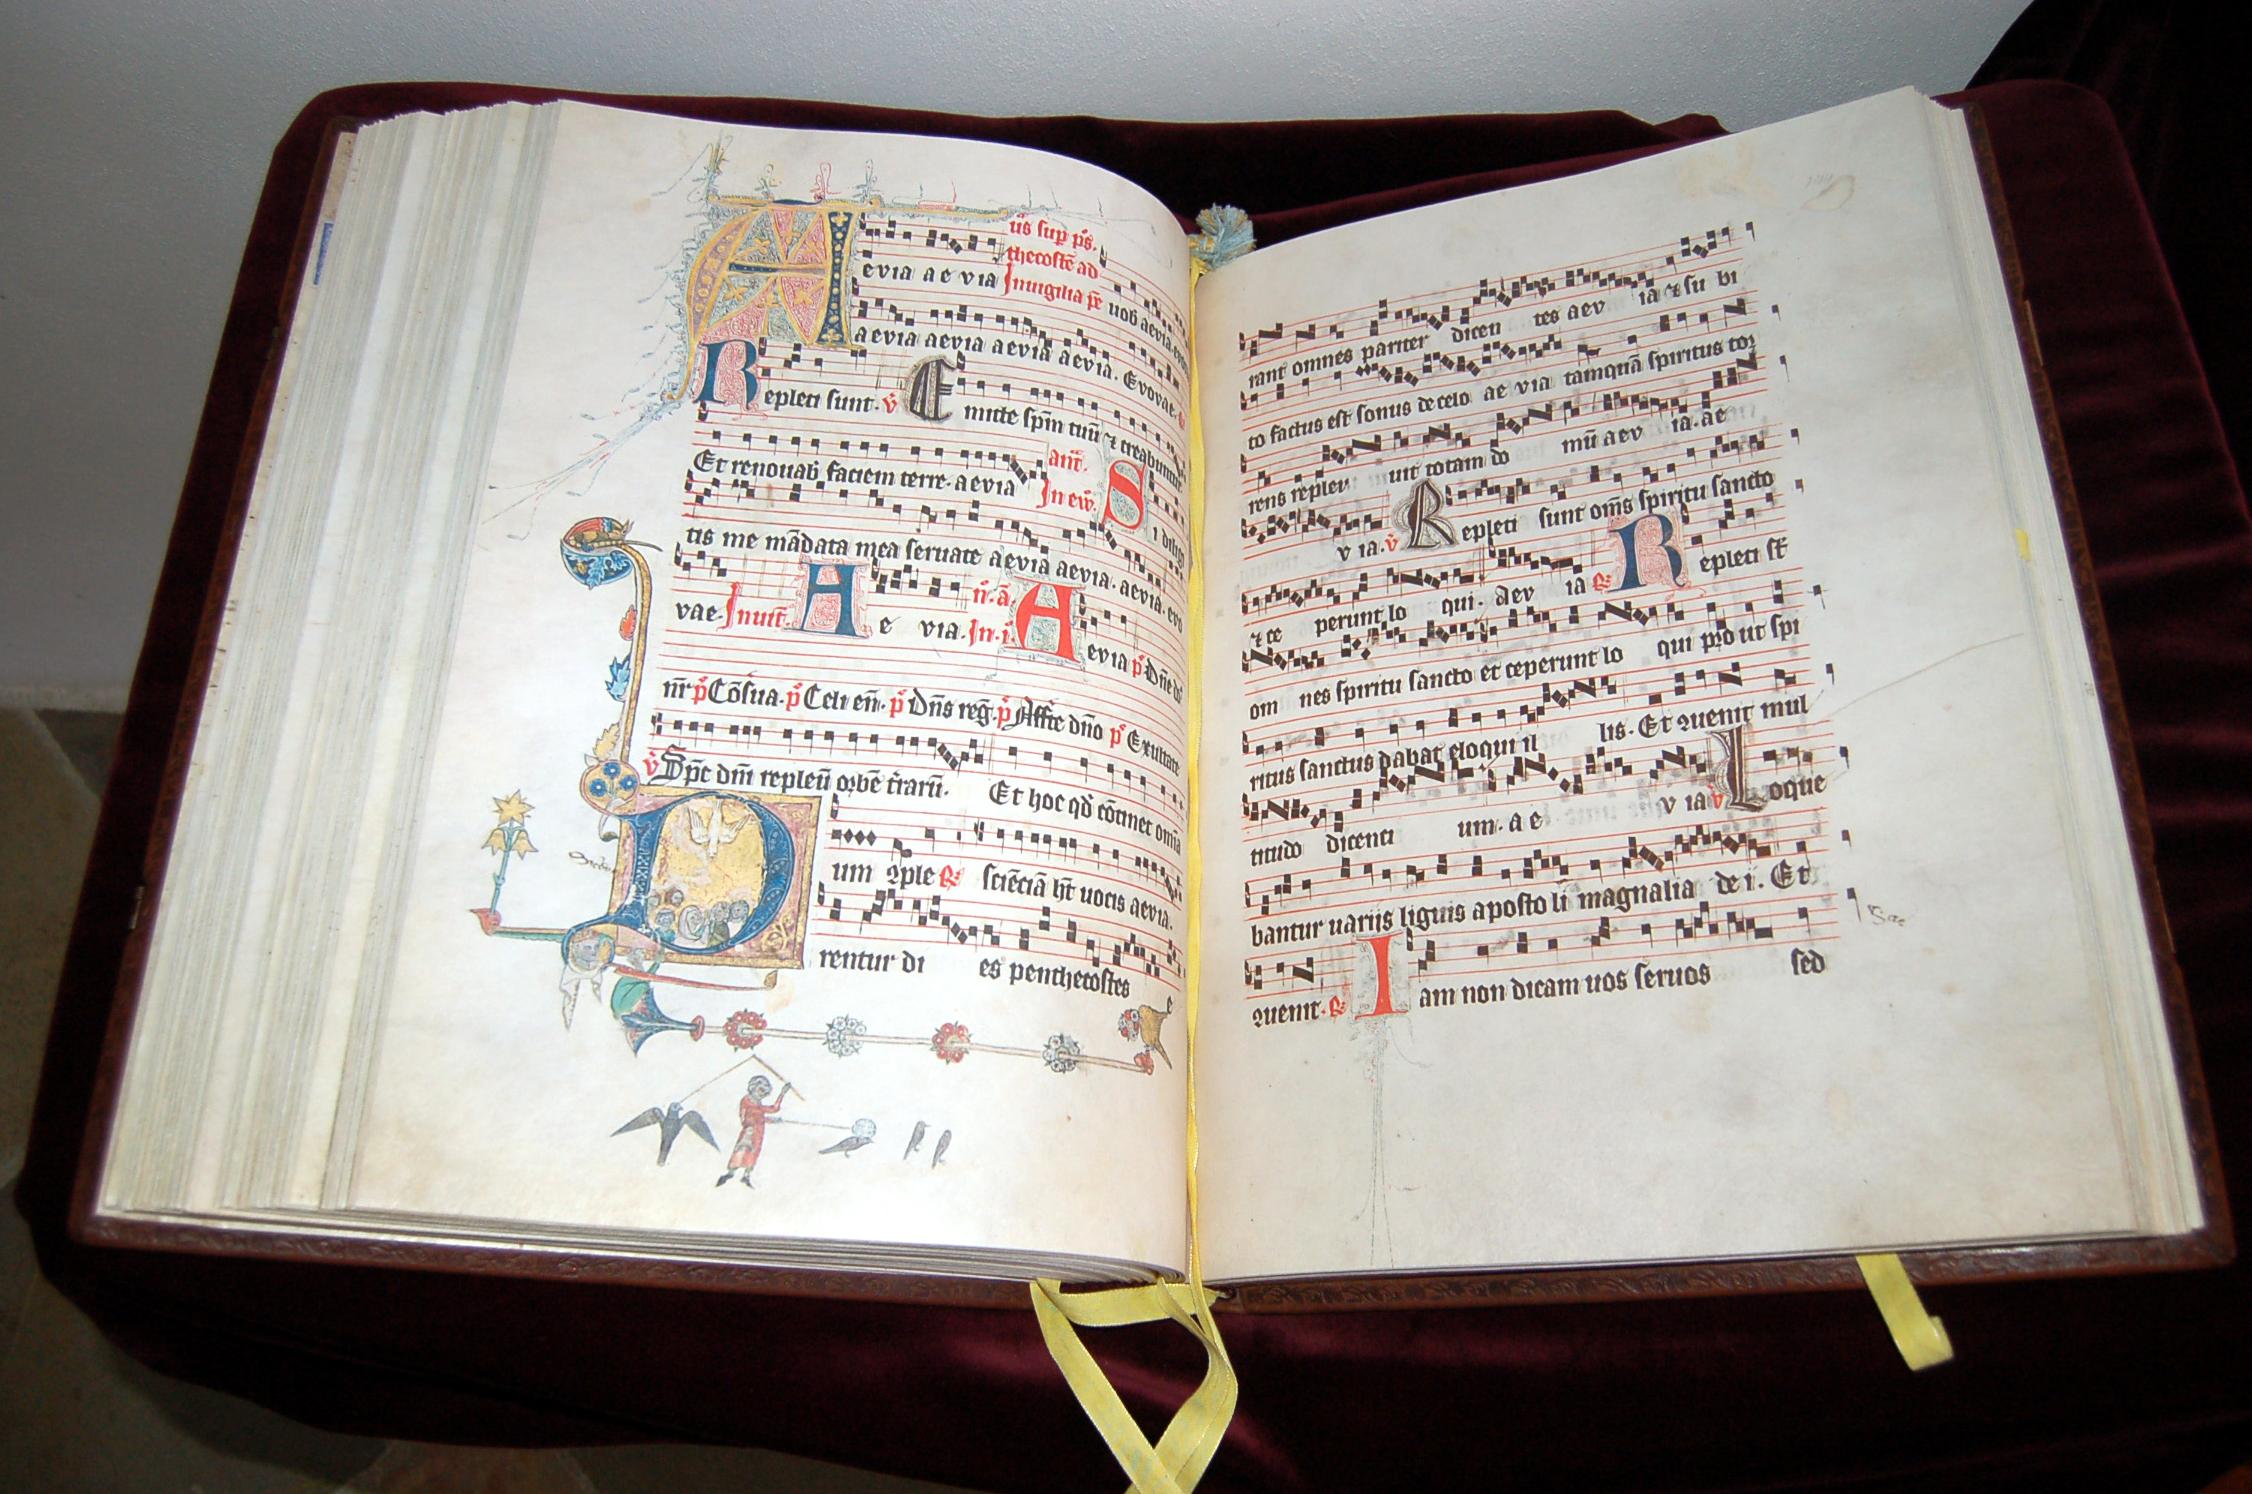 us sup p̄s.
thecostē ad
evia a e via Inuigilia p̄e uob aevia.
aevia aevia aevia aevia. Evovae.
Repleti sunt. ℣ Emitte sp̄m tuū ⁊ creabuntur
Et renouab faciem terre. aevia ant̄. In ev̄. Si diligi
tis me mādata mea seruate aevia aevia. aevia. evo
vae. Inuit̄. Ae via. In .i. n̄. a. Aevia p̄ Dn̄e
nr̄ p̄ Cōs̄ua. p̄ Celi en̄. p̄ Dn̄s reḡ. p̄ Affr̄te dn̄o p̄ Exultate
℣ Sp̄c dn̄i repleū orbē t̄rarū. Et hoc qd̄ cōtinet om̄ia
Dum ꝯple ℟ sciēciā ht̄ uocis aevia.
rentur di es penthecostes e
rant omnes pariter dicen tes aev ia ⁊ su bi
to factus est sonus de celo ae via tamquā spiritus tor
rens replev uit totam do mū aev ia. ae
v ia. ℣ Repleti sunt om̄s spiritu sancto
⁊ ce perunt lo qui. aev ia ℟ Repleti st̄
om nes spiritu sancto et ceperunt lo qui pro ut spi
ritus sanctus dabat eloqui il lis. Et ꝯuenit mul
titudo dicenti um. a e v ia ℣ Loque
bantur uarijs liguis aposto li magnalia de i. Et
ꝯuenit. ℟ Iam non dicam uos seruos sed